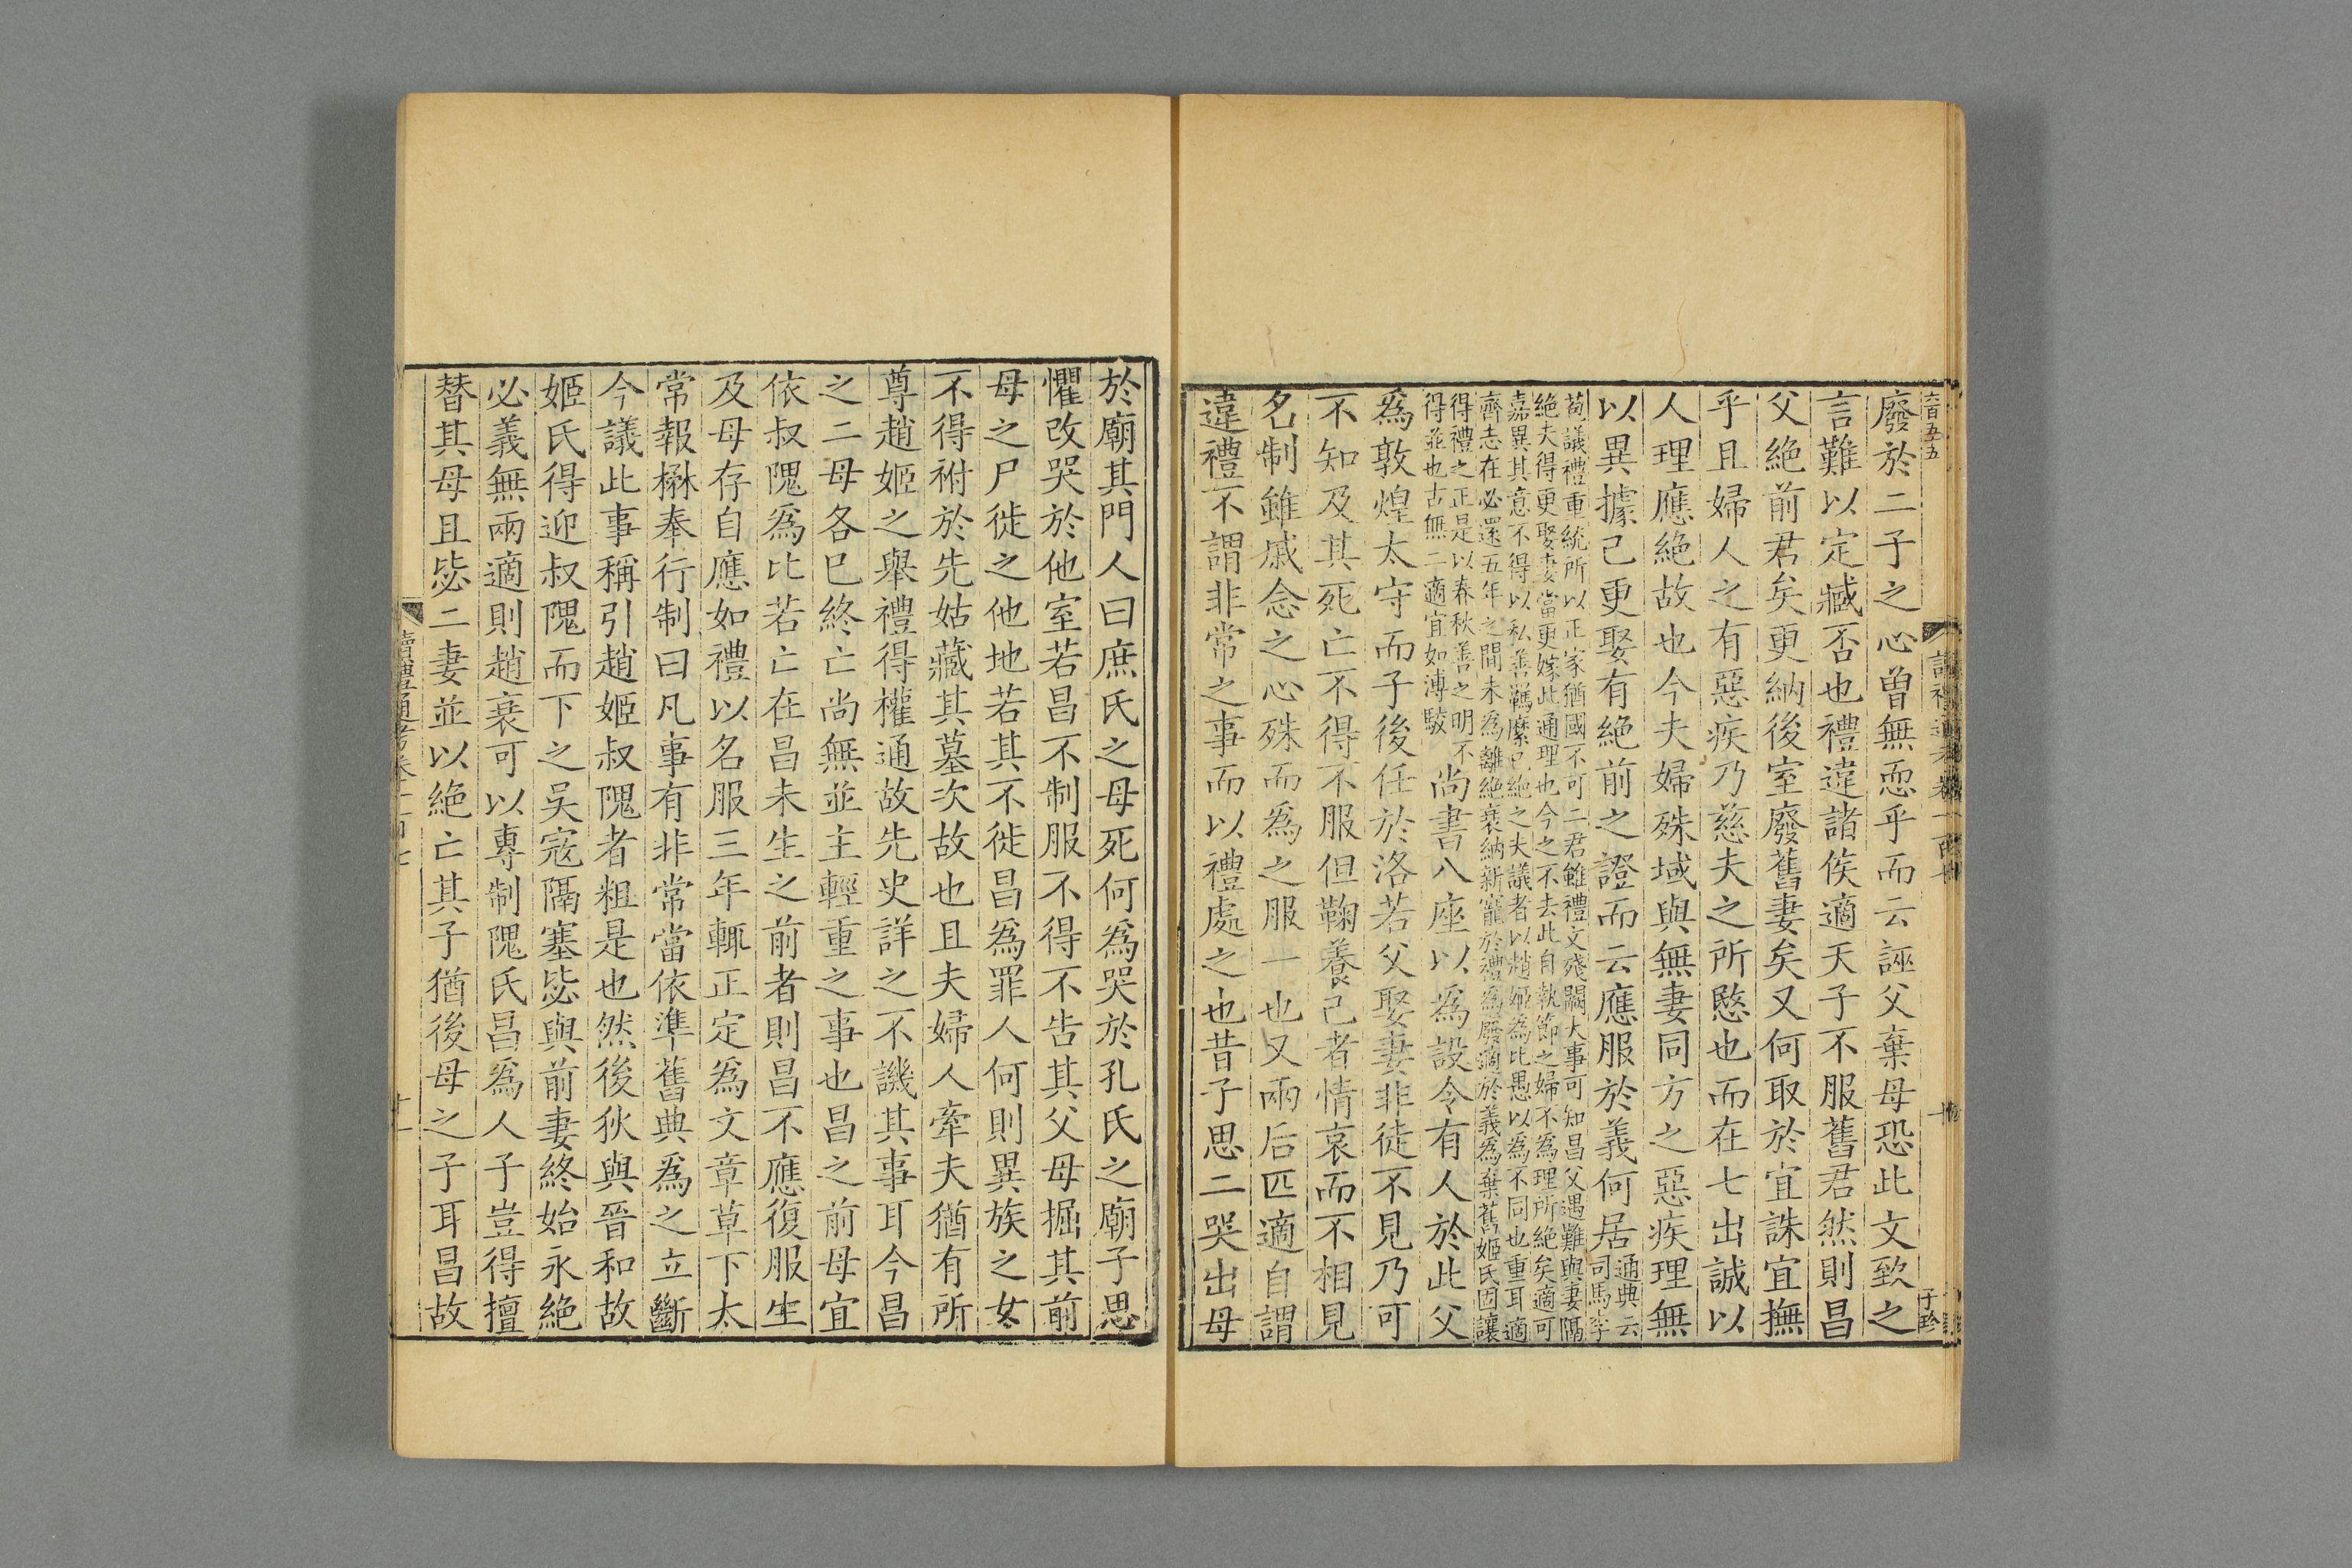 六百五十五
廢於二子之心曽無恧乎而云誣父棄母恐此文致之
言難以定臧否也禮違諸侯適天子不服舊君然則昌
父絶前君矣更納後室廢舊妻矣又何取於宜誅宜撫
乎且婦人之有惡疾乃慈夫之所愍也而在七出誠以
人理應絶故也今夫婦殊域與無妻同方之惡疾理無
以異據己更娶有絶前之證而云應服於義何居
通典云
司馬李
苞議禮重統所以正家猶國不可二君雖禮文殘闕大事可知昌父遇難與妻隔
絶夫得更娶妻當更嫁此通理也今之不去此自執節之婦不為理所絶矣適可
嘉異其意不得以私善羈縻已絶之夫議者以趙姬為比愚以為不同也重耳適
齊志在必還五年之間未為離絶衰納新寵於禮為廢適於義為棄舊姬氏固讓
得禮之正是以春秋善之明不
得並也古無二適宜如溥駮
尚書八座以爲設令有人於此父
爲敦煌太守而子後任於洛若父娶妻非徒不見乃可
不知及其死亡不得不服但鞠養己者情哀而不相見
名制雖戚念之心殊而爲之服一也又兩后匹適自謂
違禮不謂非常之事而以禮處之也昔子思二哭出母
於廟其門人曰庶氏之母死何爲哭於孔氏之廟子思
懼改哭於他室若昌不制服不得不告其父母掘其前
母之尸徙之他地若其不徙昌爲罪人何則異族之女
不得祔於先姑藏其墓次故也且夫婦人牽夫猶有所
尊趙姬之舉禮得權通故先史詳之不譏其事耳今昌
之二母各巳終亡尚無並主輕重之事也昌之前母宜
依叔隗爲比若亡在昌未生之前者則昌不應復服生
及母存自應如禮以名服三年輒正定爲文章草下太
常報楙奉行制曰凡事有非常當依準舊典爲之立斷
今議此事稱引趙姬叔隗者粗是也然後狄與晉和故
姬氏得迎叔隗而下之吳寇隔塞毖與前妻終始永絶
必義無兩適則趙衰可以專制隗氏昌爲人子豈得擅
替其母且毖二妻並以絶亡其子猶後母之子耳昌故